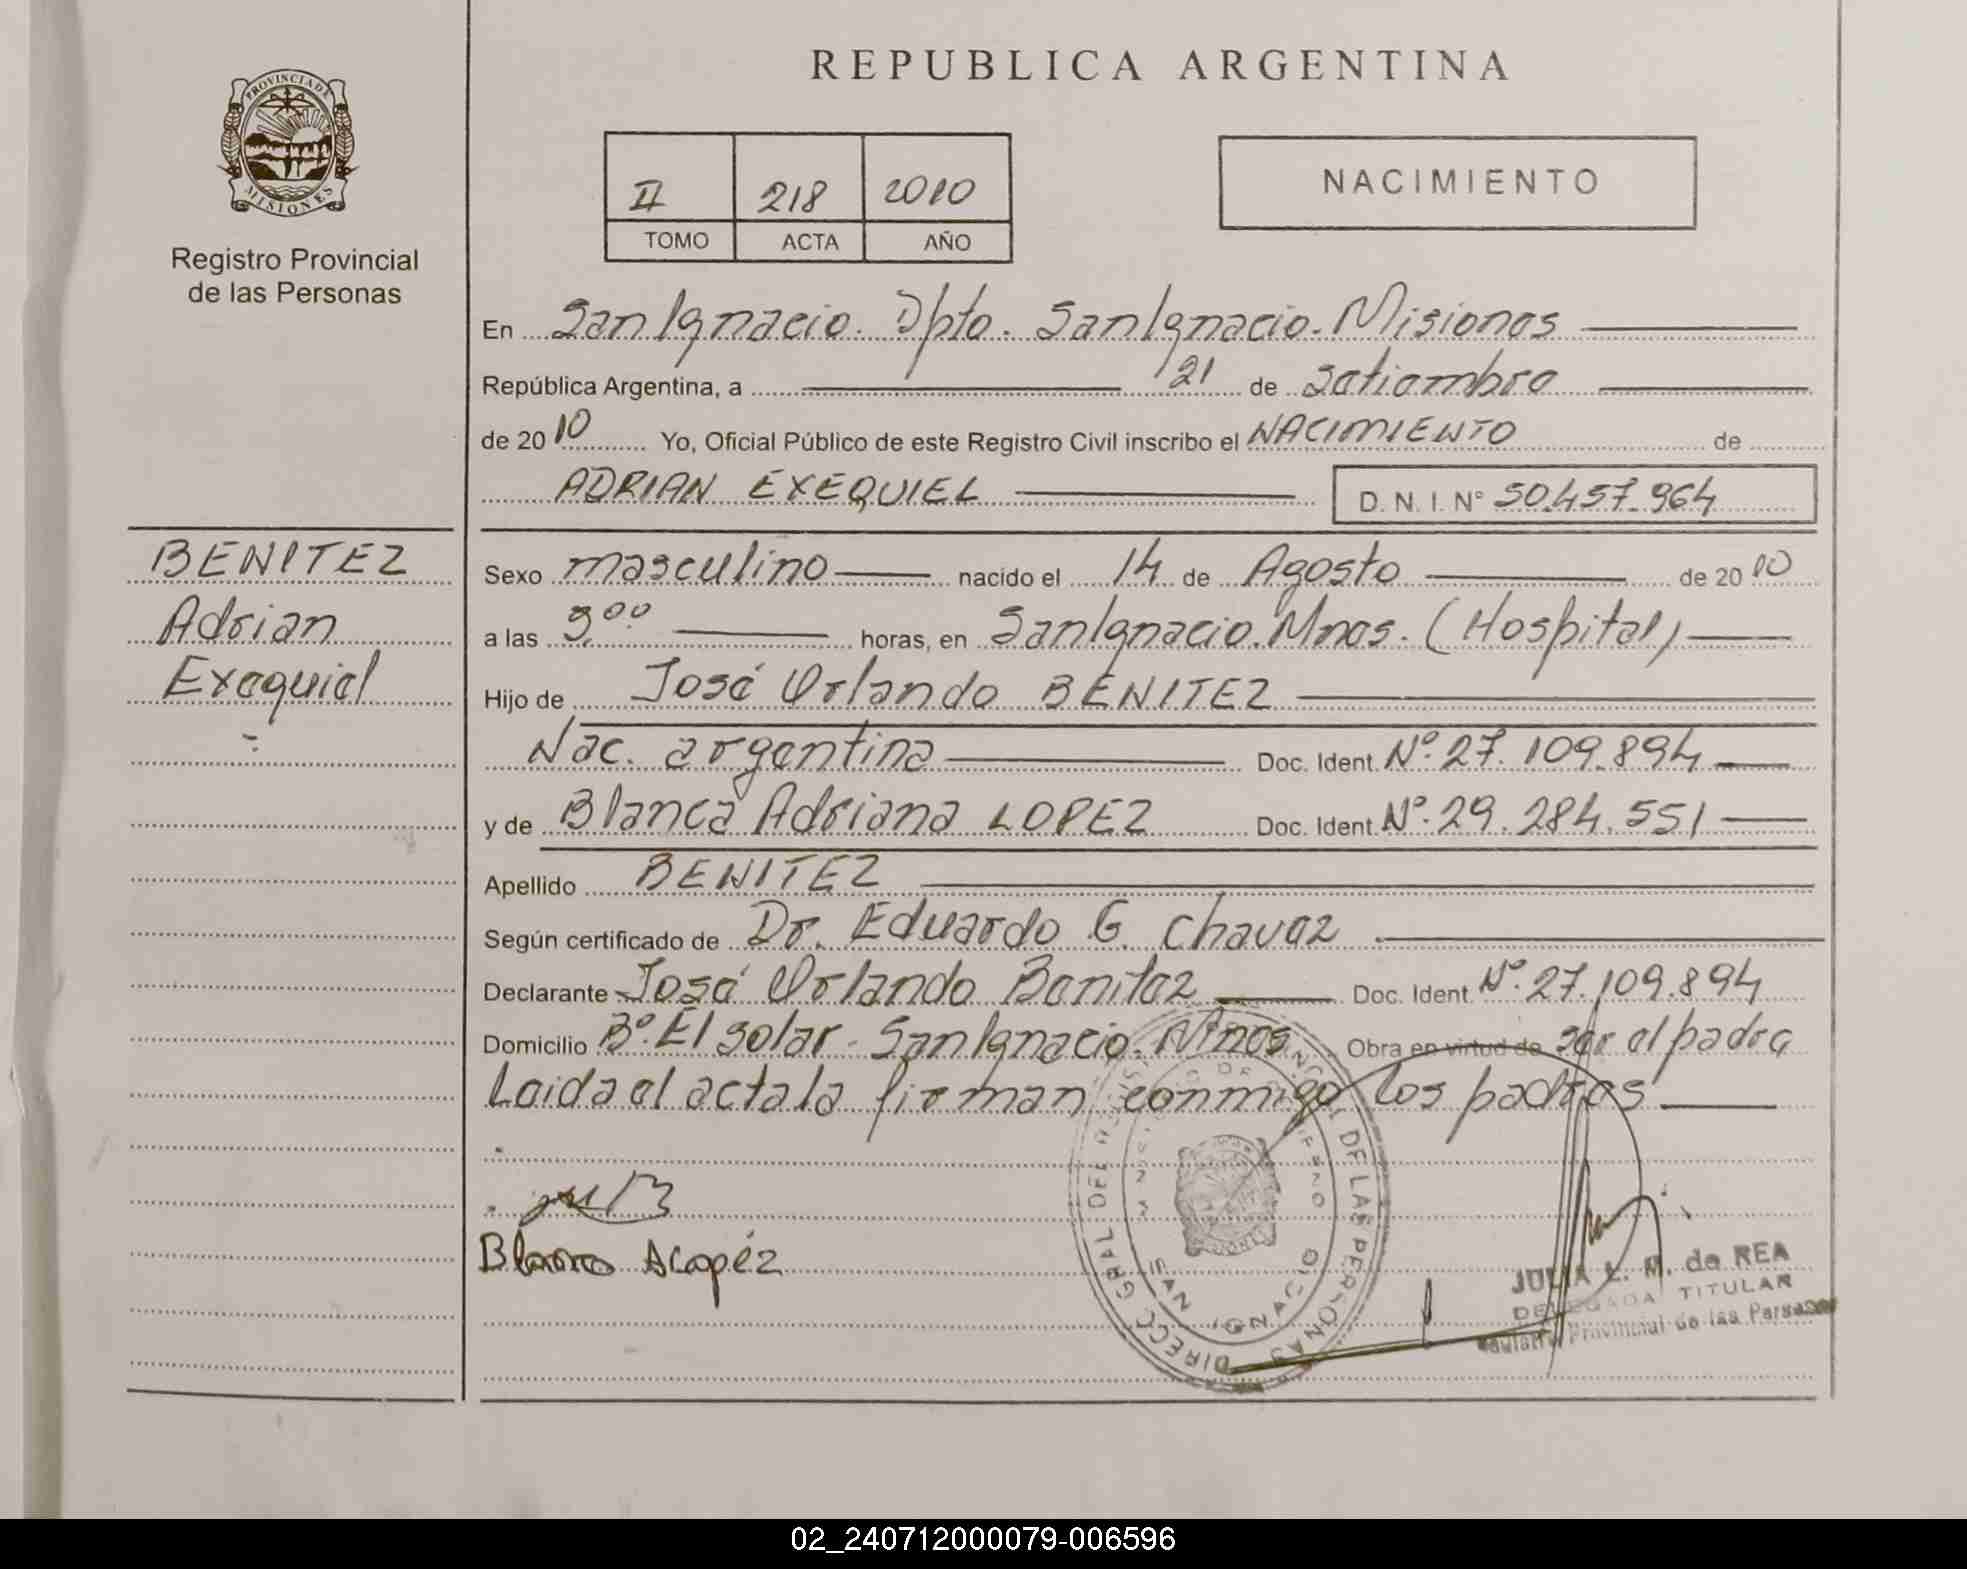 REPUBLICA ARGENTINA
PROVINCIA DE
MISIONES
Registro Provincial
de las Personas
II 218 2010
TOMO ACTA AÑO
NACIMIENTO
En San Ignacio. Dpto. San Ignacio. Misiones
República Argentina, a 21 de Setiembre
de 2010 Yo, Oficial Público de este Registro Civil inscribo el NACIMIENTO de
ADRIAN EXEQUIEL D. N. I. Nº 50.457.964
BENITEZ
Adrian
Exequiel
Sexo masculino nacido el 14 de Agosto de 2010
a las horas, en San Ignacio. Mnes. (Hospital)
Hijo de José Orlando BENITEZ
Nac. argentina Doc. Ident. Nº. 27.109.894
y de Blanca Adriana LOPEZ Doc. Ident. Nº. 29.284.551
Apellido BENITEZ
Según certificado de Dr. Eduardo G. Chavez
Declarante José Orlando Benitez Doc. Ident. Nº. 27.109.894
Domicilio Bº. El solar - San Ignacio. Mnes. Obra en virtud de ser el padre
Leida el acta la firman conmigo los padres
DIRECC. GRAL. DEL REGISTRO PROVINCIAL DE LAS PERSONAS
SAN IGNACIO
JULIA E. M. de REA
DELEGADA TITULAR
Registro Provincial de las Personas
02_240712000079-006596